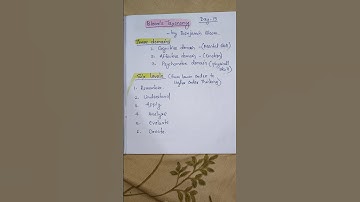 Bloom's Taxonomy Day-19
- by Benjamin Bloom
Three domains
1. Cognitive domain - (Mental skill)
2. Affective domain - (Emotion)
3. Psychomotor domain - (Physical skill)
Six levels (from lower order to
Higher order Thinking)
1. Remember
2. Understand
3. Apply
4. Analyze
5. Evaluate
6. Create